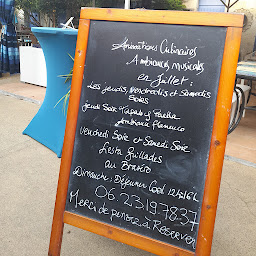 Animations Culinaires
Ambiances musicales
en Juillet :
Les Jeudis, Vendredis et Samedis
Soirs
Jeudi Soir Tapas & Paella
Ambiance Flamenco
Vendredi Soir et Samedi Soir
Festa Grillades
au Brasero
Dimanche : Déjeuner Cool 12h/16h
06.23.19.78.37
Merci de penser à Réserver